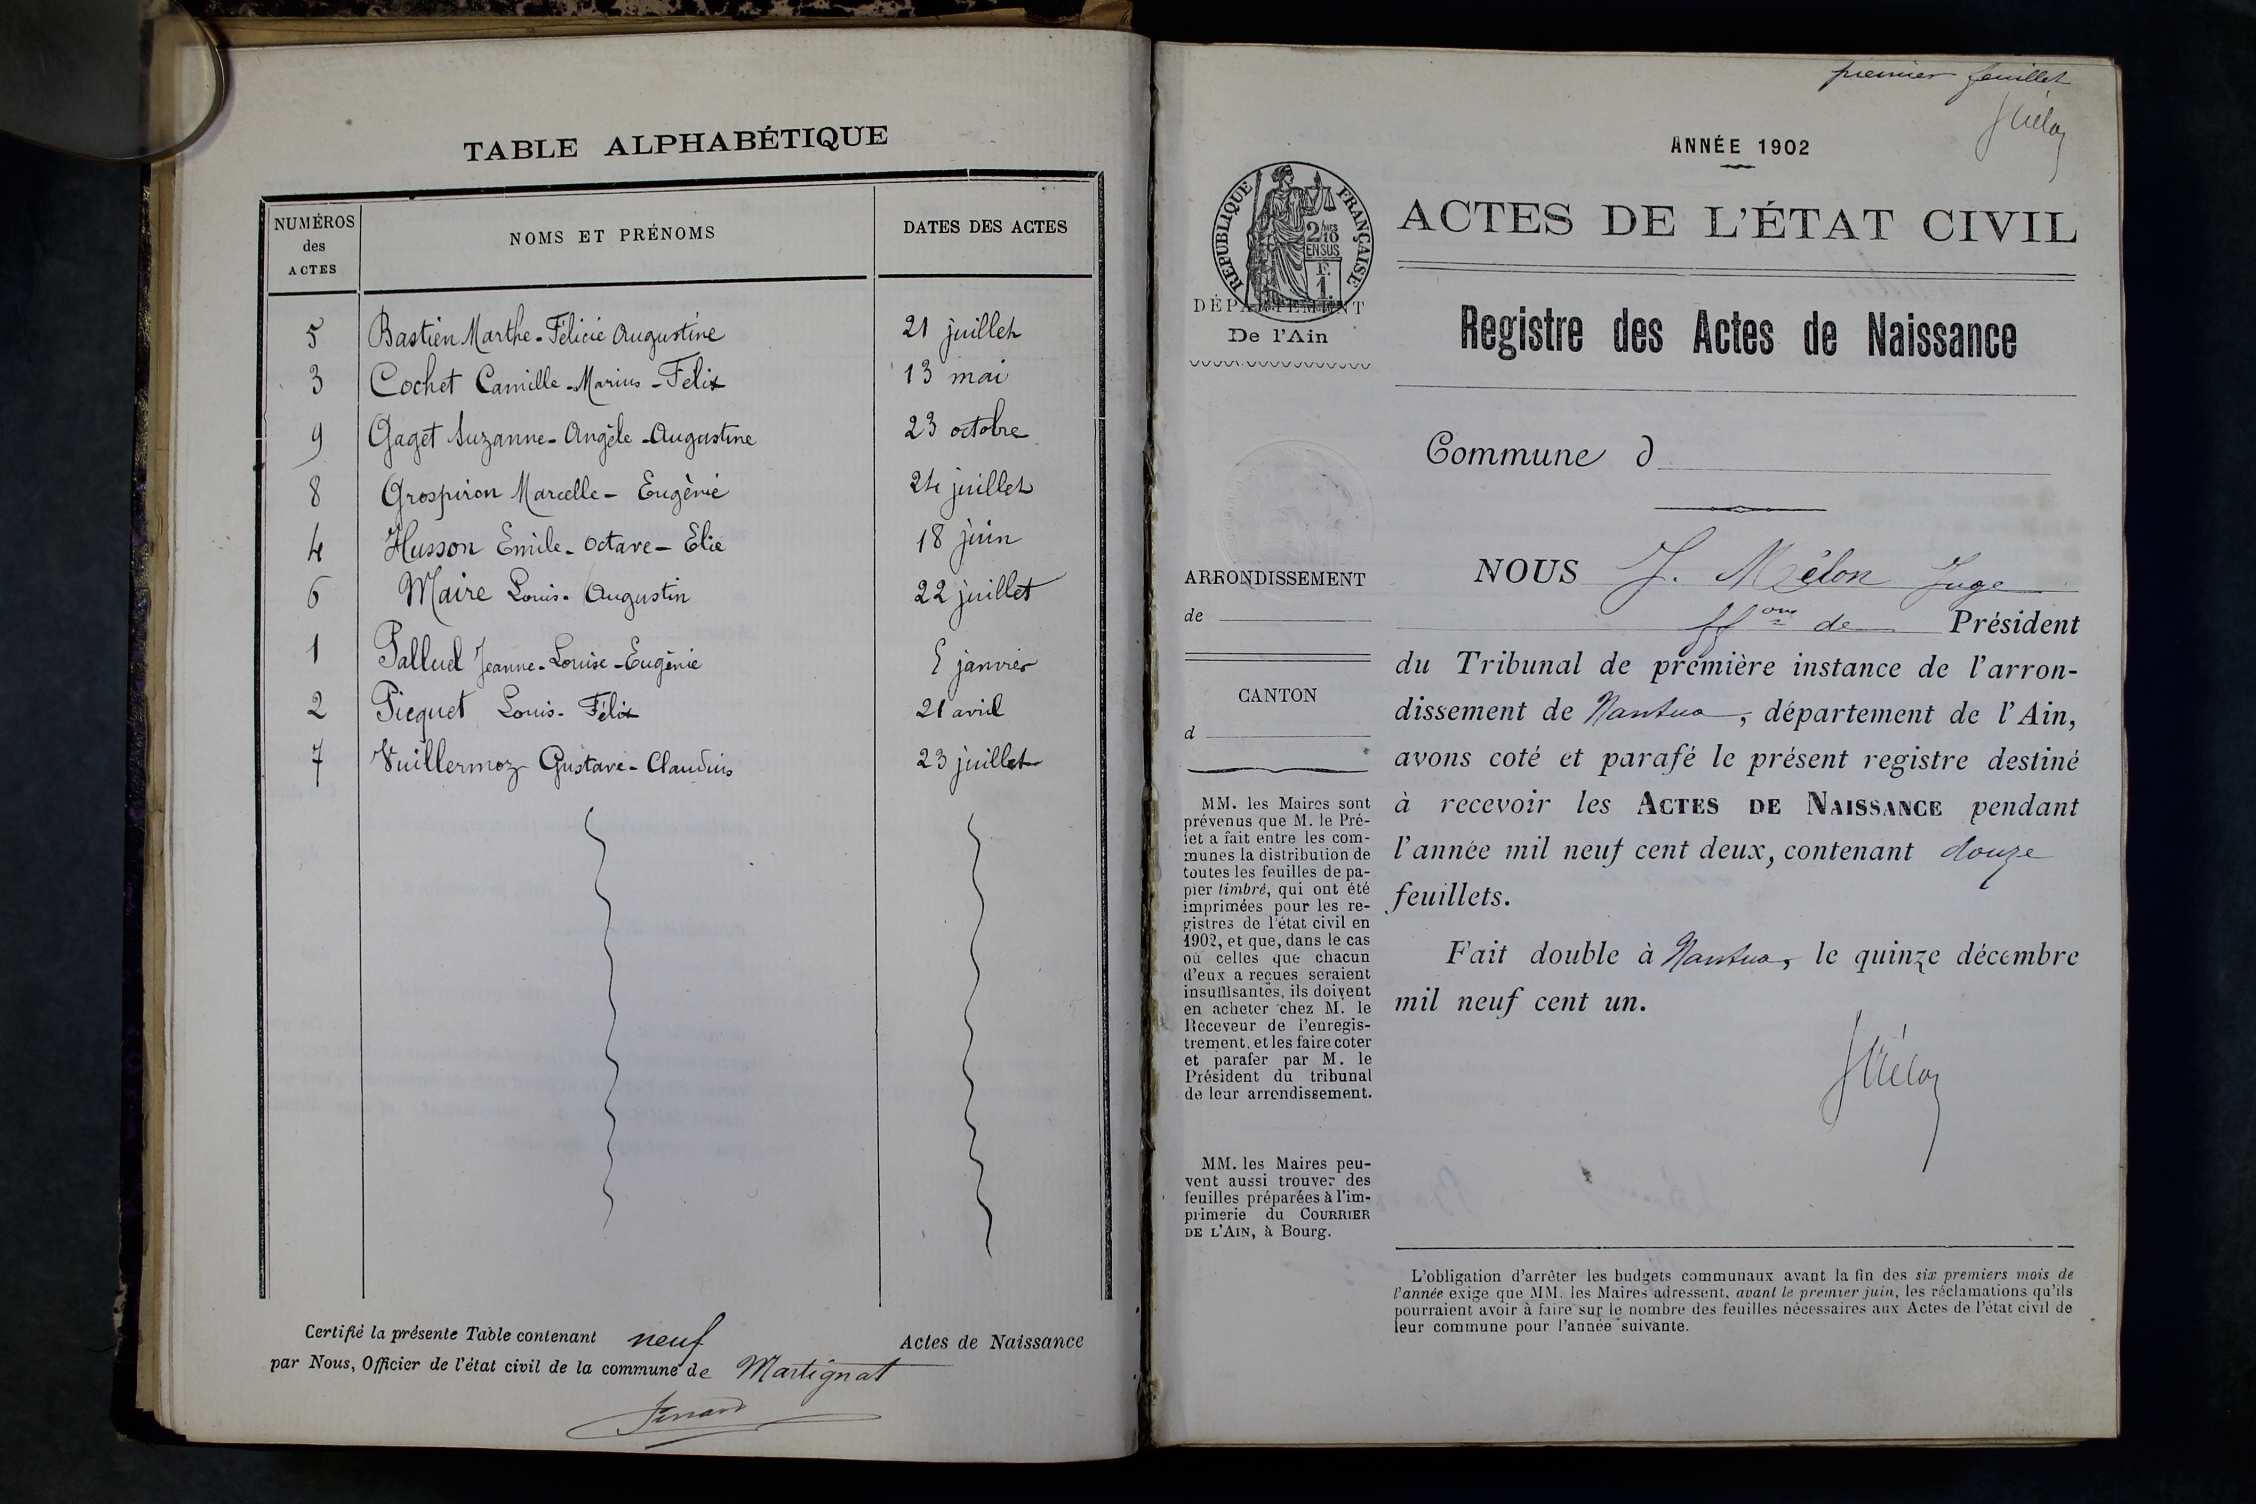 TABLE ALPHABÉTIQUE
NUMÉROS des ACTES NOMS ET PRÉNOMS DATES DES ACTES
5 Bastien Marthe-Félicie Augustine 21 juillet
3 Cochet Camille-Marius-Félix 13 mai
9 Gaget Suzanne-Angèle-Augustine 23 octobre
8 Grospiron Marcelle-Eugènie 24 juillet
4 Husson Emile-Octave-Elie 18 juin
6 Maire Louis-Augustin 22 juillet
1 Palluel Jeanne-Louise-Eugènie 5 janvier
2 Picquet Louis-Félix 21 avril
7 Vuillermoz Gustave-Claudius 23 juillet
Certifié la présente Table contenant neuf Actes de Naissance
par Nous, Officier de l'état civil de la commune de Martignat
premier feuillet
JMélon
ANNÉE 1902
ACTES DE L'ÉTAT CIVIL
RÉPUBLIQUE FRANÇAISE
2/10
EN SUS
F.
1.
DÉPARTEMENT
De l'Ain
Registre des Actes de Naissance
Commune d
ARRONDISSEMENT
de
CANTON
d
MM. les Maires sont
prévenus que M. le Pré-
fet a fait entre les com-
munes la distribution de
toutes les feuilles de pa-
pier timbré, qui ont été
imprimées pour les re-
gistres de l'état civil en
1902, et que, dans le cas
où celles que chacun
d'eux a reçues seraient
insuffisantes, ils doivent
en acheter chez M. le
Receveur de l'enregis-
trement, et les faire coter
et parafer par M. le
Président du tribunal
de leur arrondissement.
MM. les Maires peu-
vent aussi trouver des
feuilles préparées à l'im-
primerie du COURRIER
DE L'AIN, à Bourg.
NOUS J. Mélon Juge
ff ons de Président
du Tribunal de première instance de l'arron-
dissement de Nantua, département de l'Ain,
avons coté et parafé le présent registre destiné
à recevoir les ACTES DE NAISSANCE pendant
l'année mil neuf cent deux, contenant douze
feuillets.
Fait double à Nantua, le quinze décembre
mil neuf cent un.
JMélon
L'obligation d'arrêter les budgets communaux avant la fin des six premiers mois de
l'année exige que MM. les Maires adressent, avant le premier juin, les réclamations qu'ils
pourraient avoir à faire sur le nombre des feuilles nécessaires aux Actes de l'état civil de
leur commune pour l'année suivante.